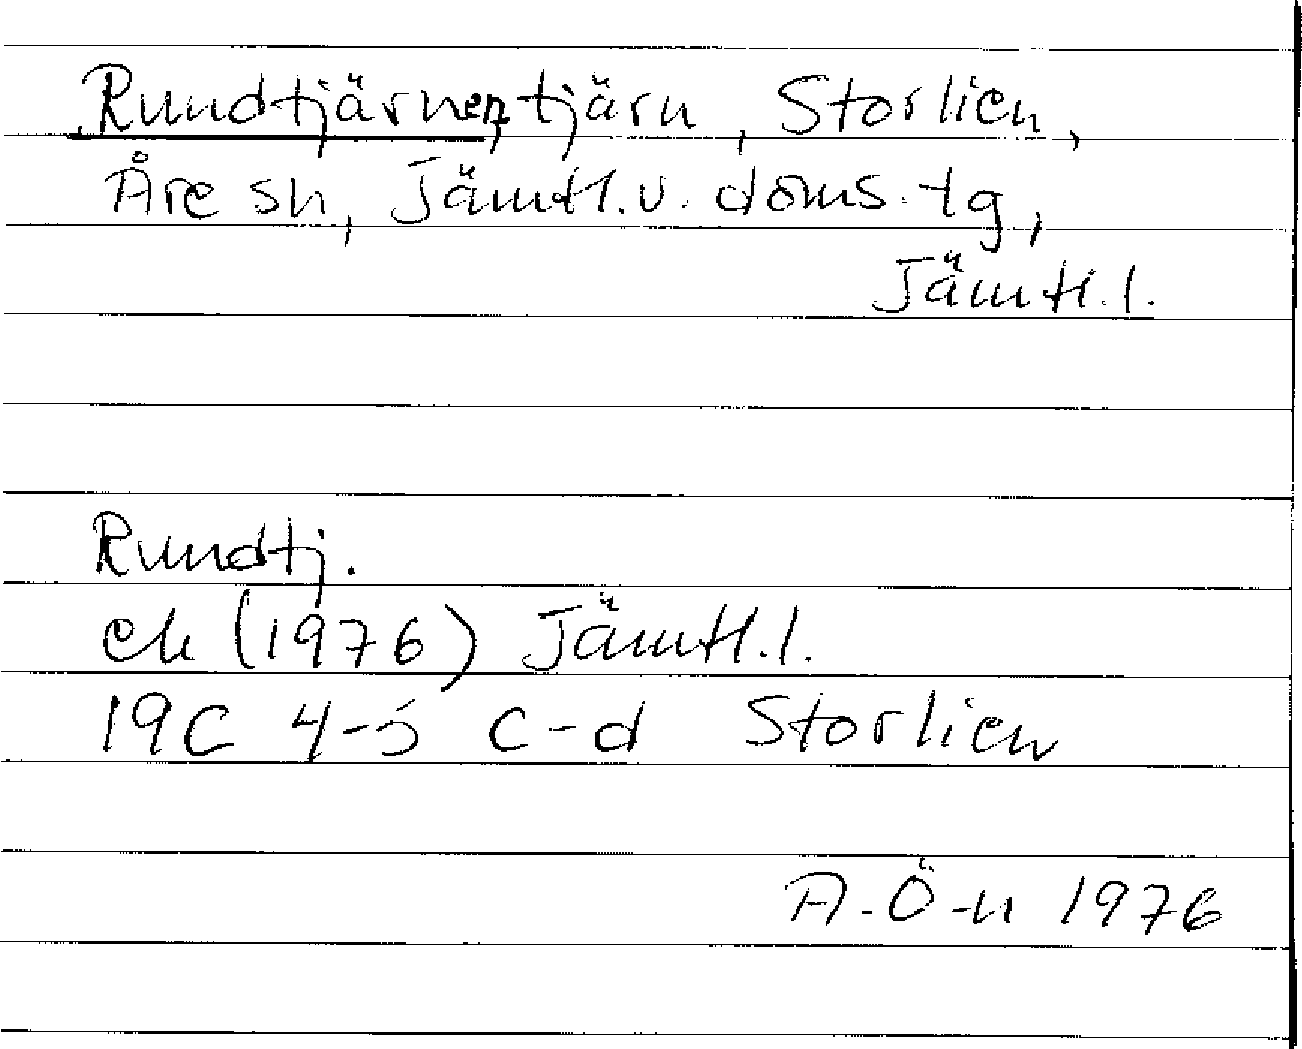 Rundtjärnen, tjärn, Storlien,
Åre sn, Jämtl.v. doms.tg,
Jämtl.l.
Rundtj.
ek (1976) Jämtl.l.
19C 4-5 c-d Storlien
A-Ö-n 1976